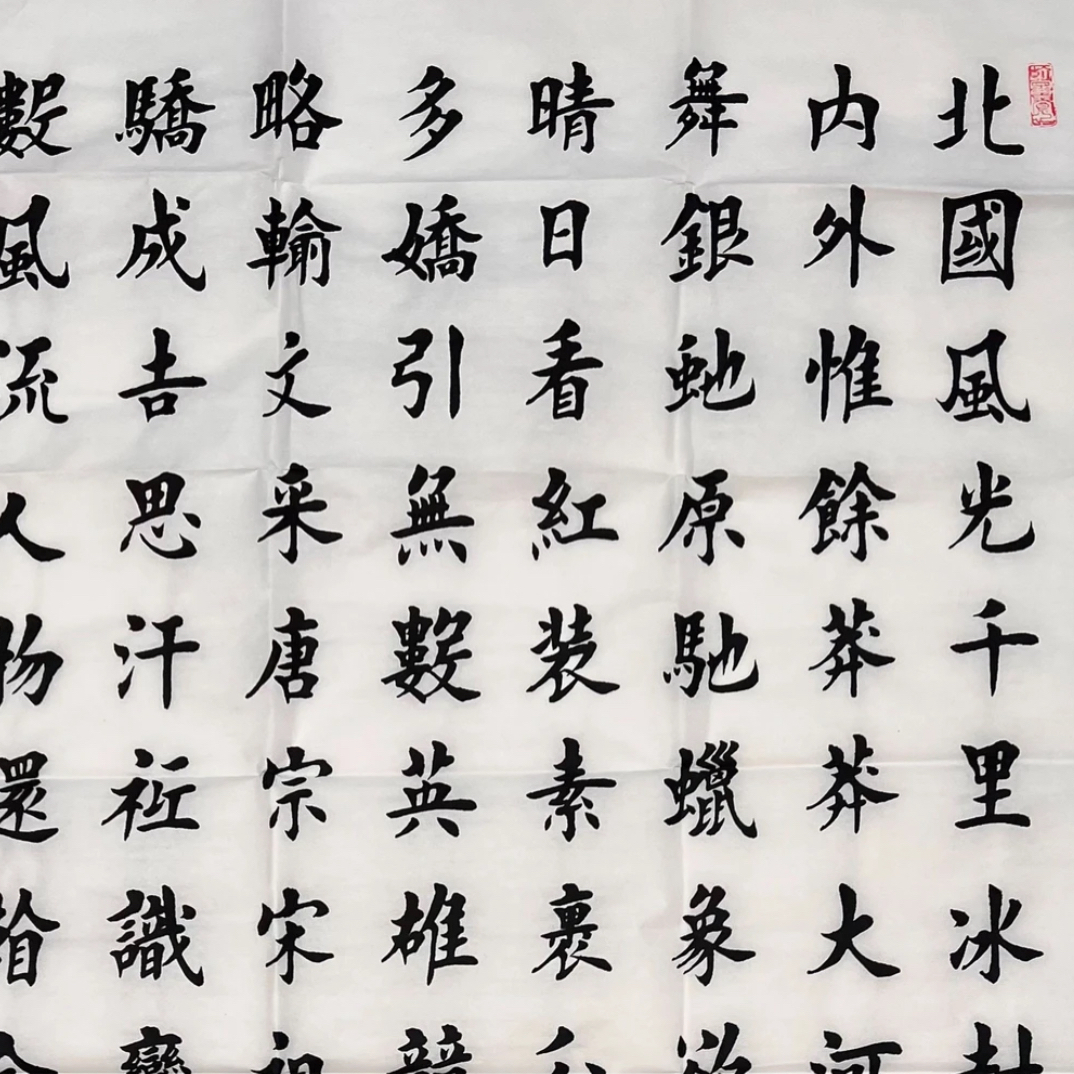 北國風光千里冰封
内外惟餘莽莽大河
舞銀虵原馳蠟象欲
晴日看紅装素裹分
多嬌引無數英雄競
略輸文采唐宗宋祖
驕成吉思汗祗識彎
數風流人物還看今